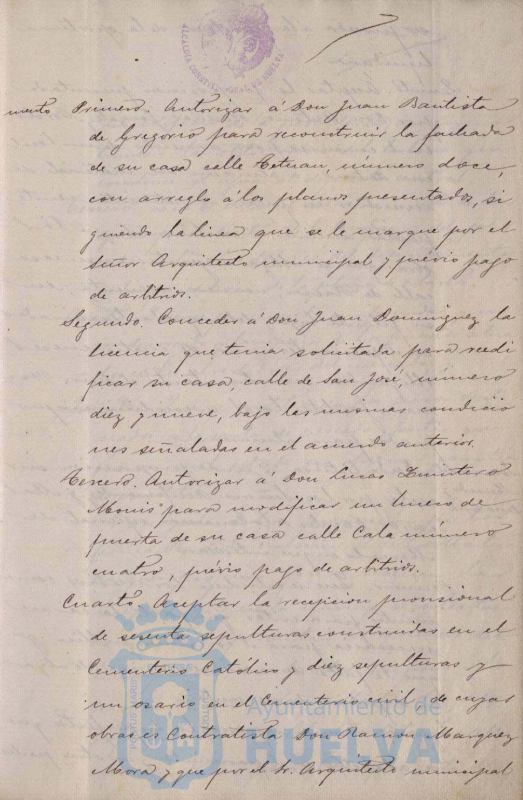 ALCALDIA CONSTITUCIONAL DE HUELVA
mento Primero. Autorizar á Don Juan Bautista
de Gregorio para reconstruir la fachada
de su casa calle Tetuan, número doce,
con arreglo á los planos presentados, si
guiendo la linea que se le marque por el
Señor Arquitecto municipal y prévio pago
de arbitrios.
Segundo. Conceder á Don Juan Dominguez la
licencia que tenia solicitada para reedi
ficar su casa, calle de San José, número
diez y nueve, bajo las mismas condicio
nes señaladas en el acuerdo anterior.
Tercero. Autorizar á Don Lucas Quintero
Monis para modificar un hueco de
puerta de su casa calle Cala número
cuatro, prévio pago de arbitrios.
Cuarto. Aceptar la recepcion provisional
de sesenta sepulturas construidas en el
Cementerio Católico y diez sepulturas y
un osario en el Cementerio civil, de cuyas
obras es Contratista Don Ramon Marquez
Mora y que por el Sr. Arquitecto municipal
Ayuntamiento de
HUELVA